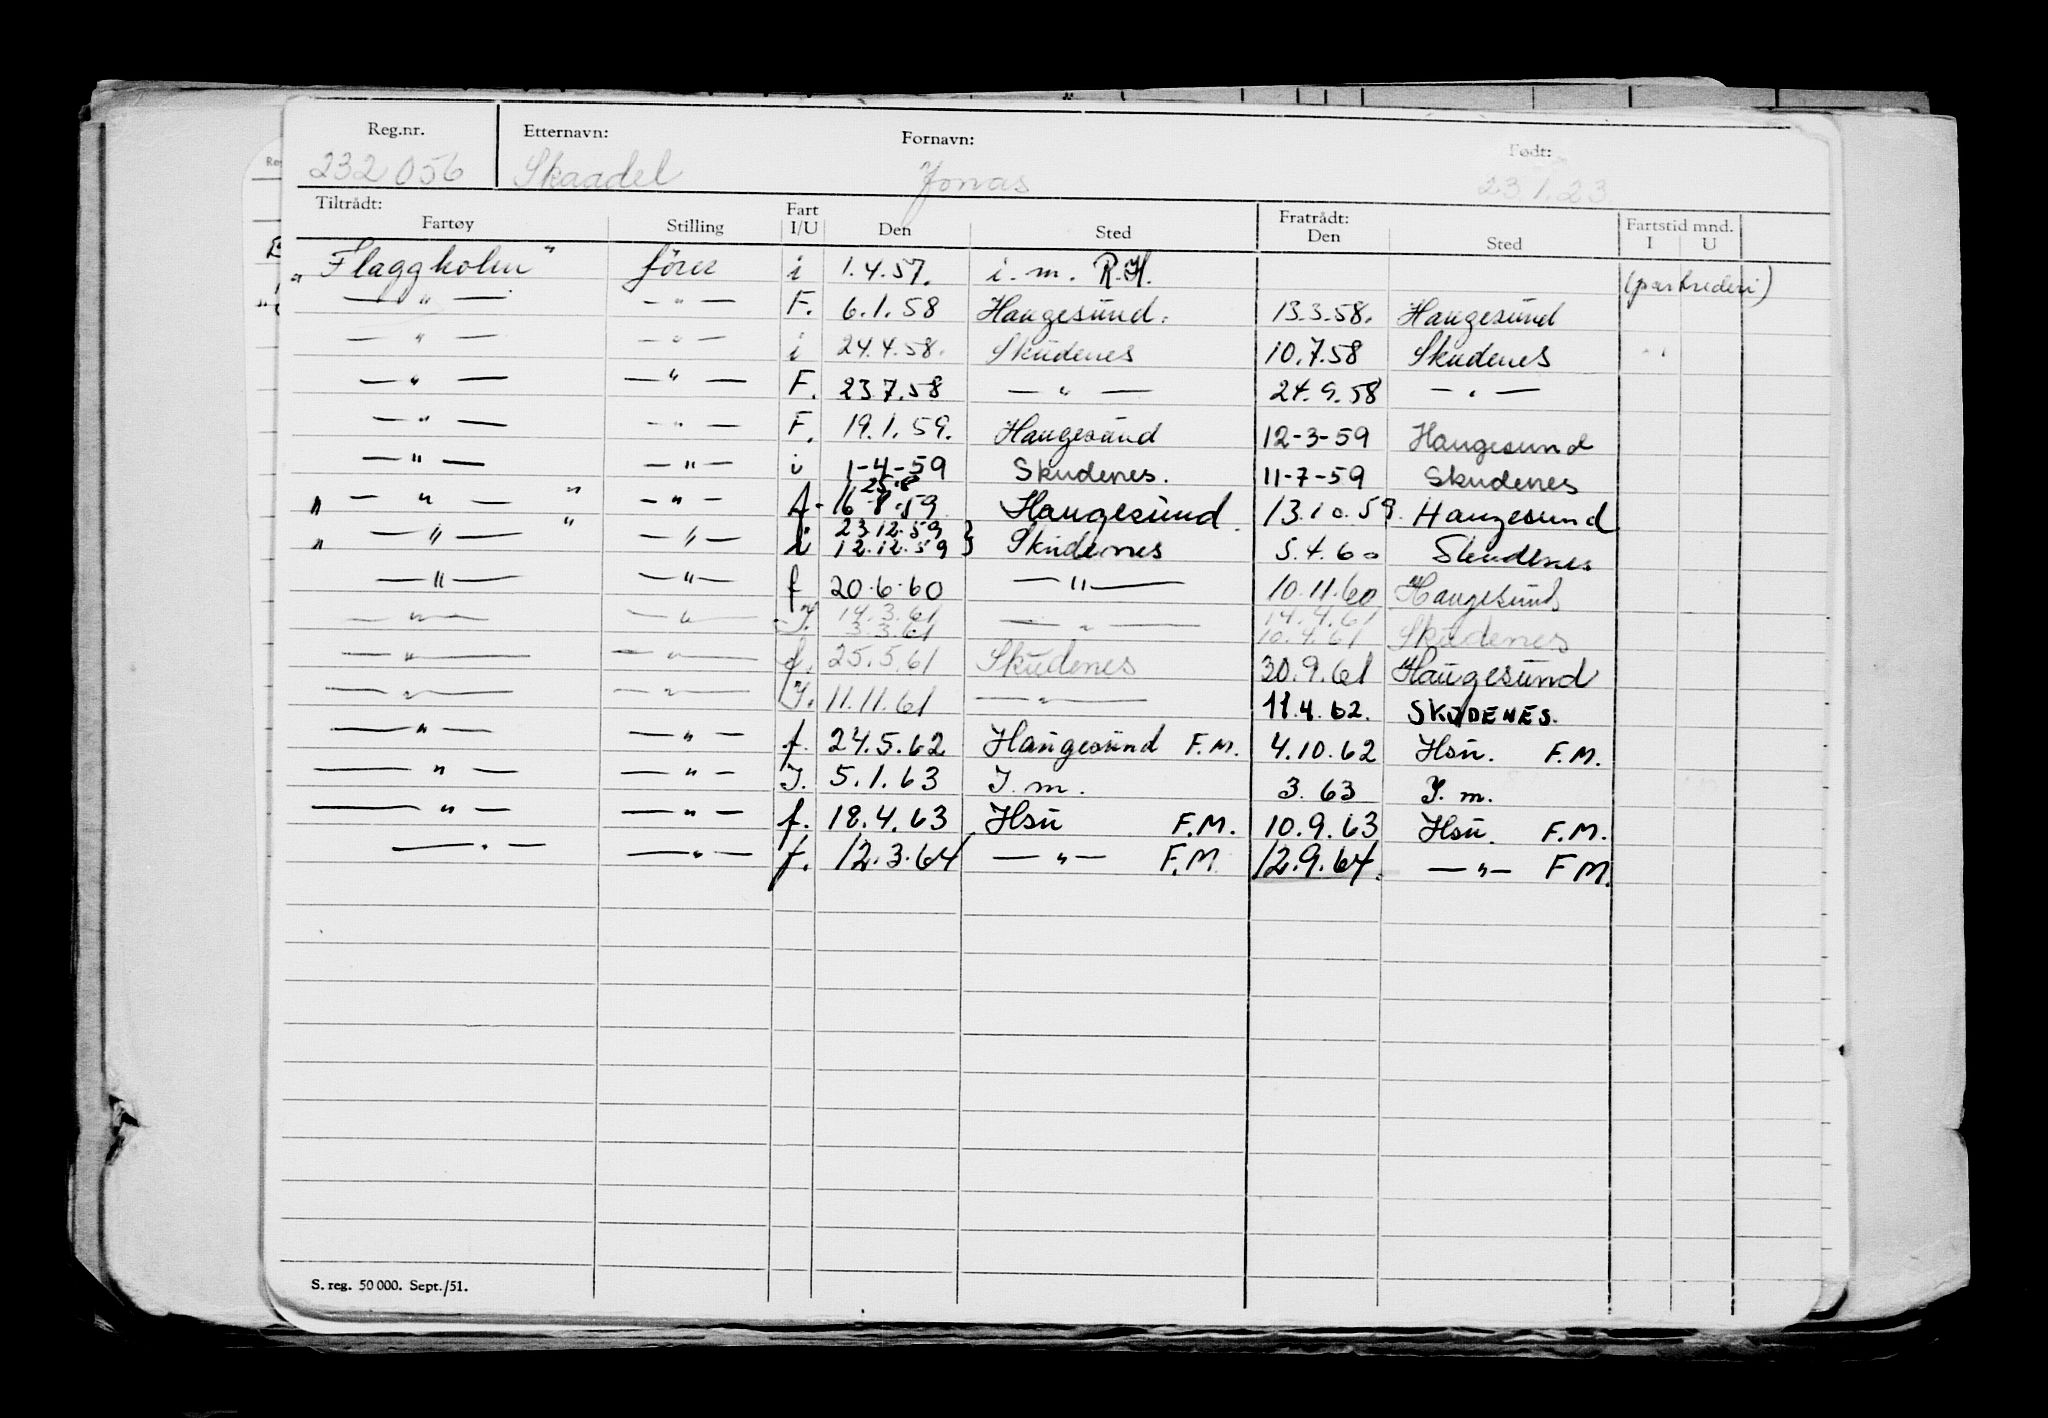 Reg.nr. Etternavn: Fornavn: Født:
232056 Skaadel Jonas 23.1.23
Tiltrådt: Fart Fratrådt: Fartstid mnd.
Fartøy Stilling I/U Den Sted Den Sted I U
"Flaggholm" fører i 1.4.57. i. m. R.H. (partrederi)
— " — — " — F. 6.1.58 Haugesund. 13.3.58. Haugesund
— " — — " — i 24.4.58. Skudenes 10.7.58 Skudenes
— " — — " — F. 23 7.58 — " — 24.9.58 — " —
— " — — " — F. 19.1.59. Haugesund 12-3-59 Haugesund
— " — — " — i 1-4-59 Skudenes. 11-7-59 Skudenes
25.8
" — " — " — " — f. 16-8.59 Haugesund. 13.10.59. Haugesund
23 12.59
" — " — " — " — i 12.12.59 } Skudenes 5.4.60 Skudenes
— " — — " — f 20.6.60 — " — 10.11.60 Haugesund
14.3.61 14.4.61
— " — — " — I. 3.3.61 — " — 10.4.61 Skudenes
— " — — " — f. 25.5.61 Skudenes 30.9.61 Haugesund
— " — — " — I. 11.11.61 — " — 11.4.62. SKUDENES.
— " — — " — f. 24.5.62 Haugesund F.M. 4.10.62 Hsu. F.M.
— " — — " — I. 5.1.63 I. m. 3. 63 I. m.
— " — — " — f. 18.4.63 Hsu F.M. 10.9.63 Hsu. F.M.
— " — — " — f. 12.3.64 — " — F.M. 12.9.64. — " — F M.
S. reg. 50 000. Sept./51.